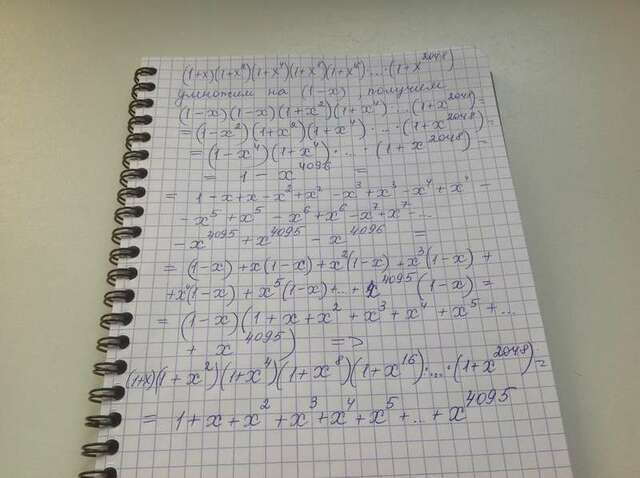 (1+x)(1+x²)(1+x⁴)(1+x⁸)(1+x⁴)....(1+x²⁰⁴⁸)
умножим на (1-x), получим
(1-x)(1-x)(1+x²)(1+x⁴)...(1+x²⁰⁴⁸)=
=(1-x²)(1+x²)(1+x⁴)·...·(1+x²⁰⁴⁸)=
=(1-x⁴)(1+x⁴)·...·(1+x²⁰⁴⁸)=
= 1-x⁴⁰⁹⁶ =
= 1-x+x-x²+x²-x³+x³-x⁴+x⁴-
-x⁵+x⁵-x⁶+x⁶-x⁷+x⁷-...
-x⁴⁰⁹⁵+x⁴⁰⁹⁵-x⁴⁰⁹⁶ =
= (1-x)+x(1-x)+x²(1-x)+x³(1-x)+
+x⁴(1-x)+x⁵(1-x)+...+x⁴⁰⁹⁵(1-x)=
= (1-x)(1+x+x²+x³+x⁴+x⁵+...
+x⁴⁰⁹⁵) =>
(1+x)(1+x²)(1+x⁴)(1+x⁸)(1+x¹⁶)·...·(1+x²⁰⁴⁸)=
= 1+x+x²+x³+x⁴+x⁵+...+x⁴⁰⁹⁵